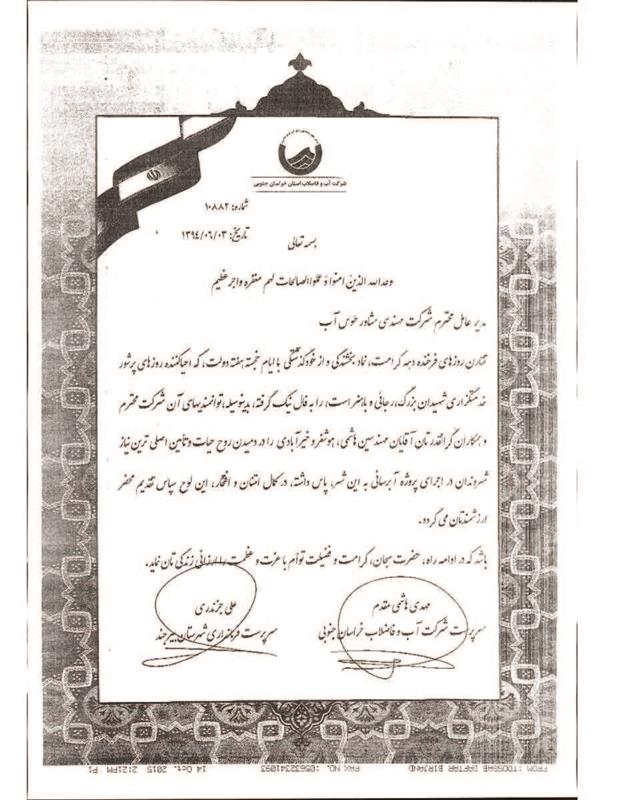 شرکت آب و فاضلاب استان خراسان جنوبی
شماره: ۱۰۸۸۲
تاریخ: ۱۳۹۴/۰۶/۰۳
بسمه تعالی
وعدالله الذین امنوا و عملوا الصالحات لهم مغفره و اجر عظیم
مدیر عامل محترم شرکت مهندسی مشاور طوس آب
تقارن روزهای فرخنده دهه کرامت، نماد بخشندگی و از خودگذشتگی با ایام خجسته هفته دولت، که احیاکننده روزهای پرشور
خدمتگزاری شهیدان بزرگ، رجائی و باهنر است، را به فال نیک گرفته، بدینوسیله، توانمندیهای آن شرکت محترم
و همکاران گرانقدرتان آقایان مهندسین هاشمی، هوشفر و خیرآبادی را در دمیدن روح حیات و تأمین اصلی ترین نیاز
شهروندان در اجرای پروژه آبرسانی به این شهر، پاس داشته، در کمال امتنان و افتخار، این لوح سپاس تقدیم محضر
ارزشمندتان می گردد.
باشد که در ادامه راه، حضرت سبحان، کرامت و فضیلت توأم با عزت و عظمت را ارزانی زندگی تان نماید.
مهدی هاشمی مقدم
سرپرست شرکت آب و فاضلاب خراسان جنوبی
علی جرندری
سرپرست فرمانداری شهرستان بیرجند
FROM :TOOSSAB DAFTAR BIRJAND FAX NO. :05632341093 14 Oct. 2015 2:21PM P1